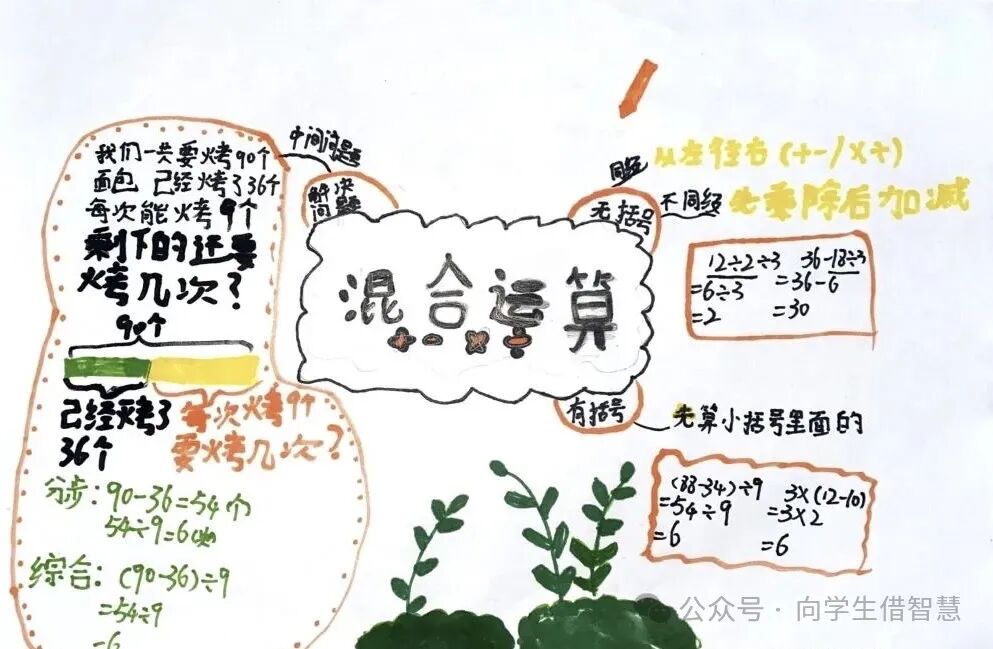 中间问题
解决
问题
我们一共要烤90个
面包 已经烤了36个
每次能烤9个
剩下的还要
烤几次?
90个
已经烤了
36个
每次烤9个
要烤几次?
分步: 90-36=54个
54÷9=6(次)
综合: (90-36)÷9
=54÷9
=6
混合运算
+ - × ÷
无括号
同级 从左往右(+-/×÷)
不同级 先乘除后加减
12÷2÷3
=6÷3
=2
36-18÷3
=36-6
=30
有括号
先算小括号里面的
(88-34)÷9
=54÷9
=6
3×(12-10)
=3×2
=6
公众号 · 向学生借智慧